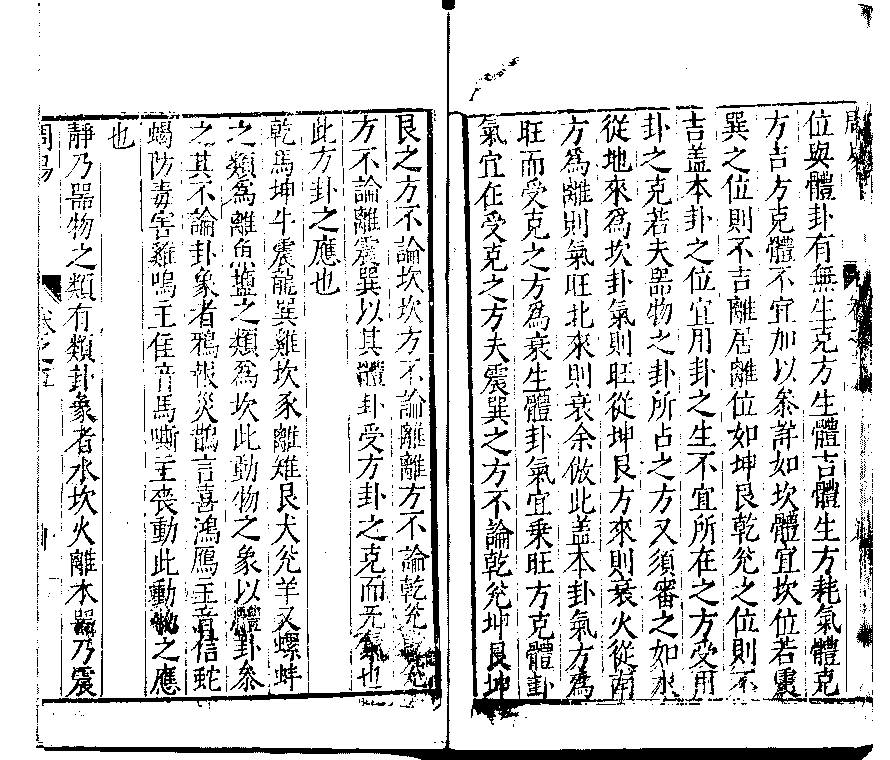 位與體卦有無生克方生體吉體生方耗氣體克
方吉方克體不宜加以叅詳如坎體宜坎位若震
巽之位則不吉離居離位如坤艮乾兊之位則不
吉盖本卦之位宜用卦之生不宜所在之方受用
卦之克若夫器物之卦所占之方又須審之如水
從地來為坎卦氣則旺從坤艮方來則衰火從南
方為離則氣旺北來則衰余倣此盖本卦氣方為
旺而受克之方為衰生體卦氣宜乗旺方克體卦
氣宜在受克之方夫震巽之方不論乾兊坤艮坤
艮之方不論坎坎方不論離離方不論乾兊
方不論離震巽以其體卦受方卦之克而无氣也
此方卦之應也
乾馬坤牛震龍巽雞坎豕離雉艮犬兊羊又螺蚌
之類為離魚鹽之類為坎此動物之象以體卦叅
之其不論卦象者鴉報災鵲言喜鴻鴈主音信蛇
蝎防毒害雞鳴主佳音馬嘶主喪動此動物之應
也
静乃器物之類有類卦象者水坎火離木器乃震
周易
卷之